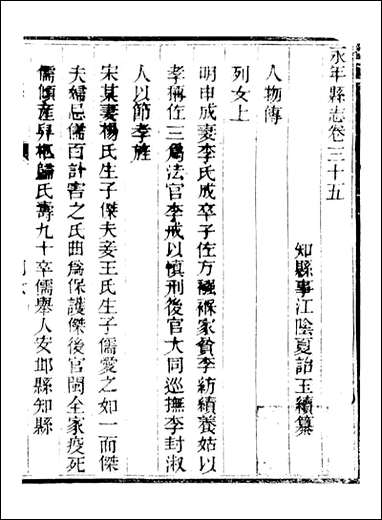 永年縣志卷三十五
知縣事江陰夏詒玉續纂
人物傳
列女上
明申成妻李氏成卒子佐方襁褓家貧李紡績養姑以
孝稱佐三為法官李戒以慎刑後官大同巡撫李封淑
人以節孝旌
宋某妻楊氏生子傑夫妾王氏生子儒愛之如一而傑
夫婦忌儒百計害之氏曲為保護傑後官閩全家疫死
儒傾產舁柩歸氏壽九十卒儒舉人安邱縣知縣